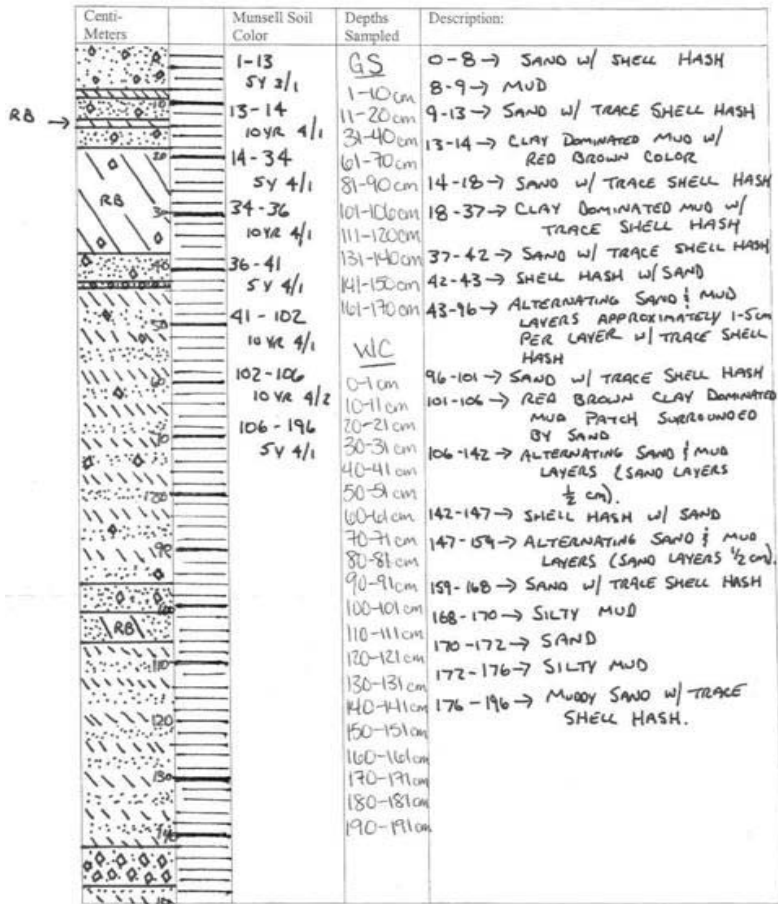 Centi-
Meters
Munsell Soil
Color
Depths
Sampled
Description:
RB →
10
20
RB
30
40
50
60
70
90
100
RB
110
120
130
140
1-13
5Y 3/1
13-14
10YR 4/1
14-34
5Y 4/1
34-36
10YR 4/1
36-41
5Y 4/1
41-102
10YR 4/1
102-106
10YR 4/2
106-196
5Y 4/1
GS
1-10cm
11-20cm
31-40cm
61-70cm
81-90cm
101-106cm
111-120cm
131-140cm
141-150cm
161-170cm
WC
0-1cm
10-11cm
20-21cm
30-31cm
40-41cm
50-51cm
60-61cm
70-71cm
80-81cm
90-91cm
100-101cm
110-111cm
120-121cm
130-131cm
140-141cm
150-151cm
160-161cm
170-171cm
180-181cm
190-191cm
0-8→ SAND W/ SHELL HASH
8-9→ MUD
9-13→ SAND W/ TRACE SHELL HASH
13-14→ CLAY DOMINATED MUD W/
RED BROWN COLOR
14-18→ SAND W/ TRACE SHELL HASH
18-37→ CLAY DOMINATED MUD W/
TRACE SHELL HASH
37-42→ SAND W/ TRACE SHELL HASH
42-43→ SHELL HASH W/ SAND
43-96→ ALTERNATING SAND & MUD
LAYERS APPROXIMATELY 1-5cm
PER LAYER W/ TRACE SHELL
HASH
96-101→ SAND W/ TRACE SHELL HASH
101-106→ RED BROWN CLAY DOMINATED
MUD PATCH SURROUNDED
BY SAND
106-142→ ALTERNATING SAND & MUD
LAYERS (SAND LAYERS
½ cm).
142-147→ SHELL HASH W/ SAND
147-159→ ALTERNATING SAND & MUD
LAYERS (SAND LAYERS ½ cm).
159-168→ SAND W/ TRACE SHELL HASH
168-170→ SILTY MUD
170-172→ SAND
172-176→ SILTY MUD
176-196→ MUDDY SAND W/ TRACE
SHELL HASH.